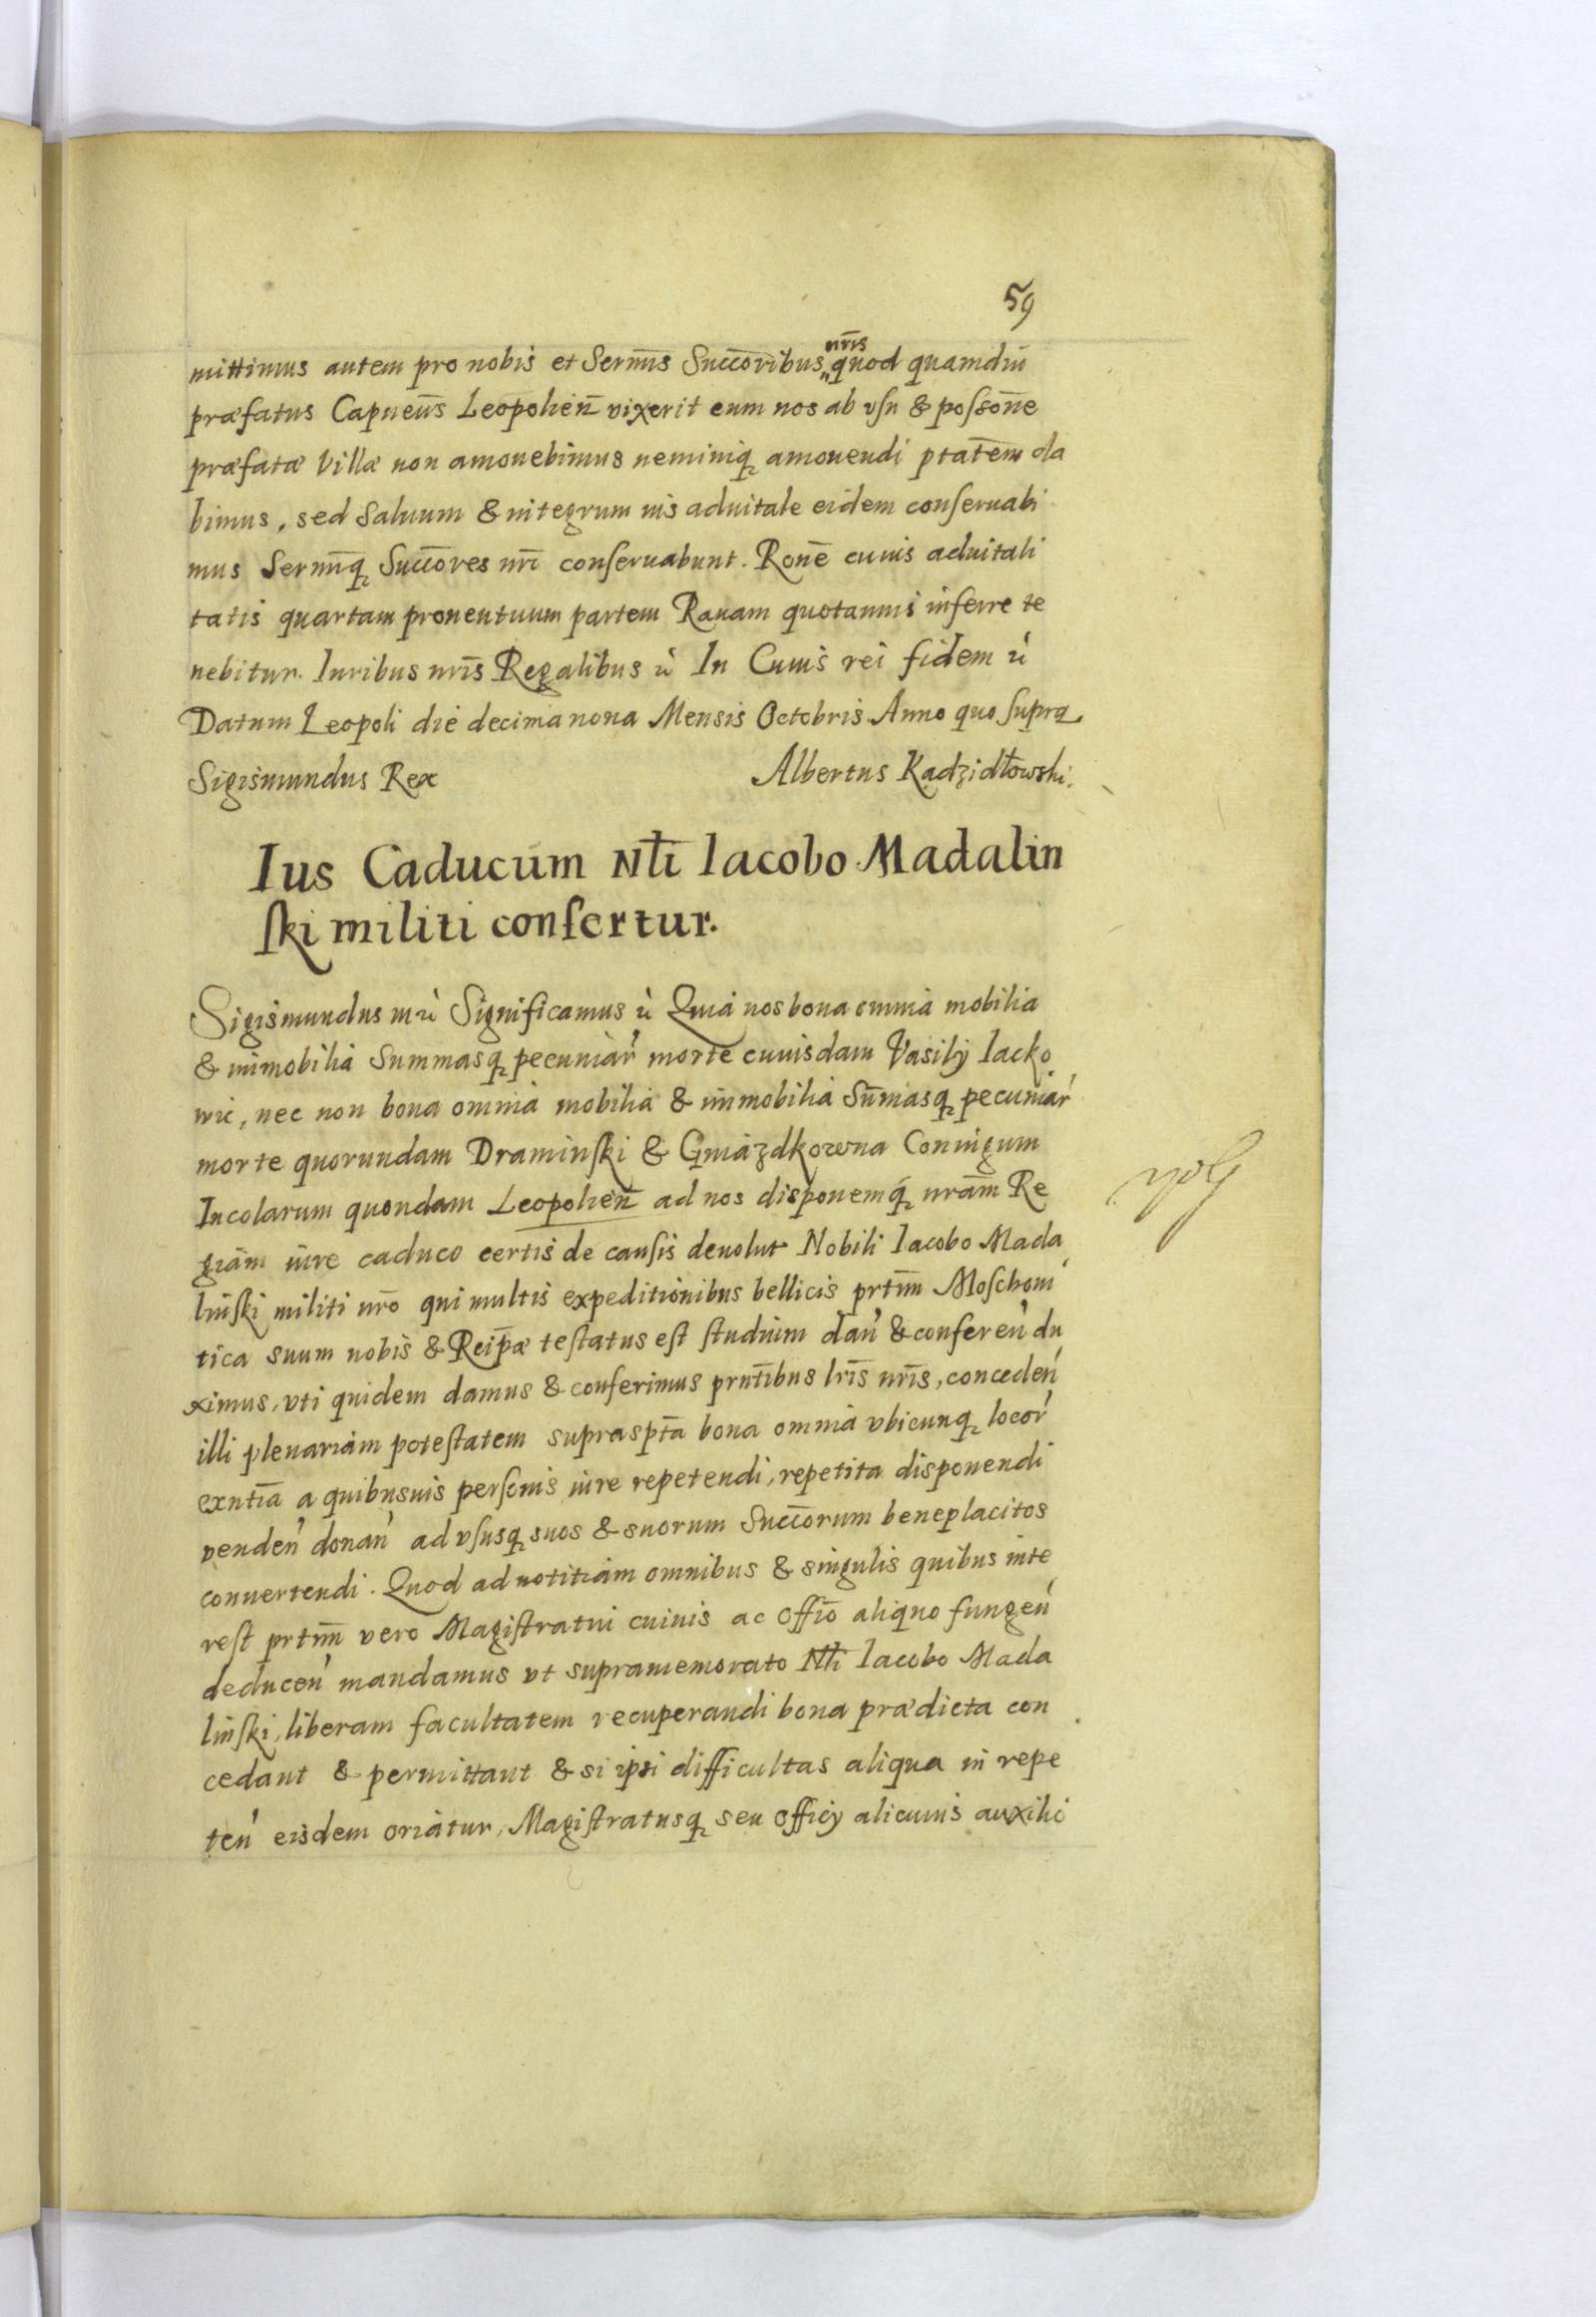 59
mittimus autem pro nobis et Serm̄s Succōribus nr̄is quod quamdiu
præfatus Capneūs Leopolien̄ vixerit eum nos ab vsu & possōne
præfatæ Villæ non amonebimus neminiq̨ amouendi ptatēm da
bimus, sed Saluum & integrum ius aduitale eidem conseruabi
mus Serm̄iq̨ Succōres nr̄i conseruabunt. Ronē cuius aduitali
tatis quartam prouentuum partem Rauam quotannis inferre te
nebitur. Iuribus nr̄is Regalibus ꝛ̀ In Cuius rei fidem ꝛ̀
Datum Leopoli die decima nona Mensis Octobris Anno quo supra
Sigismundus Rex Albertus Kadzidłowski.
Ius Caducum Nłi Iacobo Madalin
ski militi confertur.
Sigismundus III ꝛ̀ Significamus ꝛ̀ Quia nos bona omnia mobilia
& immobilia Summasq̨ pecuniar̀ morte cuiusdam Vasilij Iacko
wic, nec non bona omnia mobilia & immobilia Sūmasq̨ pecuniar̀
morte quorundam Draminski & Gniazdkowna Coniugum
Incolarum quondam Leopolien̄ ad nos disponemq̨́ nrām Re
giam iure caduco certis de causis deuolut Nobili Iacobo Mada
linski militi nrō qui multis expeditionibus bellicis prtīm Moschoui
tica suum nobis & Reip̄æ testatus est studium dań & confereń du
ximus, vti quidem damus & conferimus prntībus lr̄is nr̄is, concedeń
illi plenariam potestatem suprasptā bona omnia vbicunq̨ locor̀
exntīa a quibusuis personis iure repetendi, repetita disponendi
vendeń donań ad vsusq̨ suos & suorum Succōrum beneplacitos
conuertendi. Quod ad notitiam omnibus & singulis quibus inte
rest prtīm vero Magistratui cuiuis ac Offiō aliquo fungeń
deduceń mandamus vt supramemorato Nłi Iacobo Mada
linski, liberam facultatem recuperandi bona prædicta con
cedant & permittant & si ipsi difficultas aliqua in repe
teń eisdem oriatur, Magistratusq̨ seu Officij alicuius auxilio